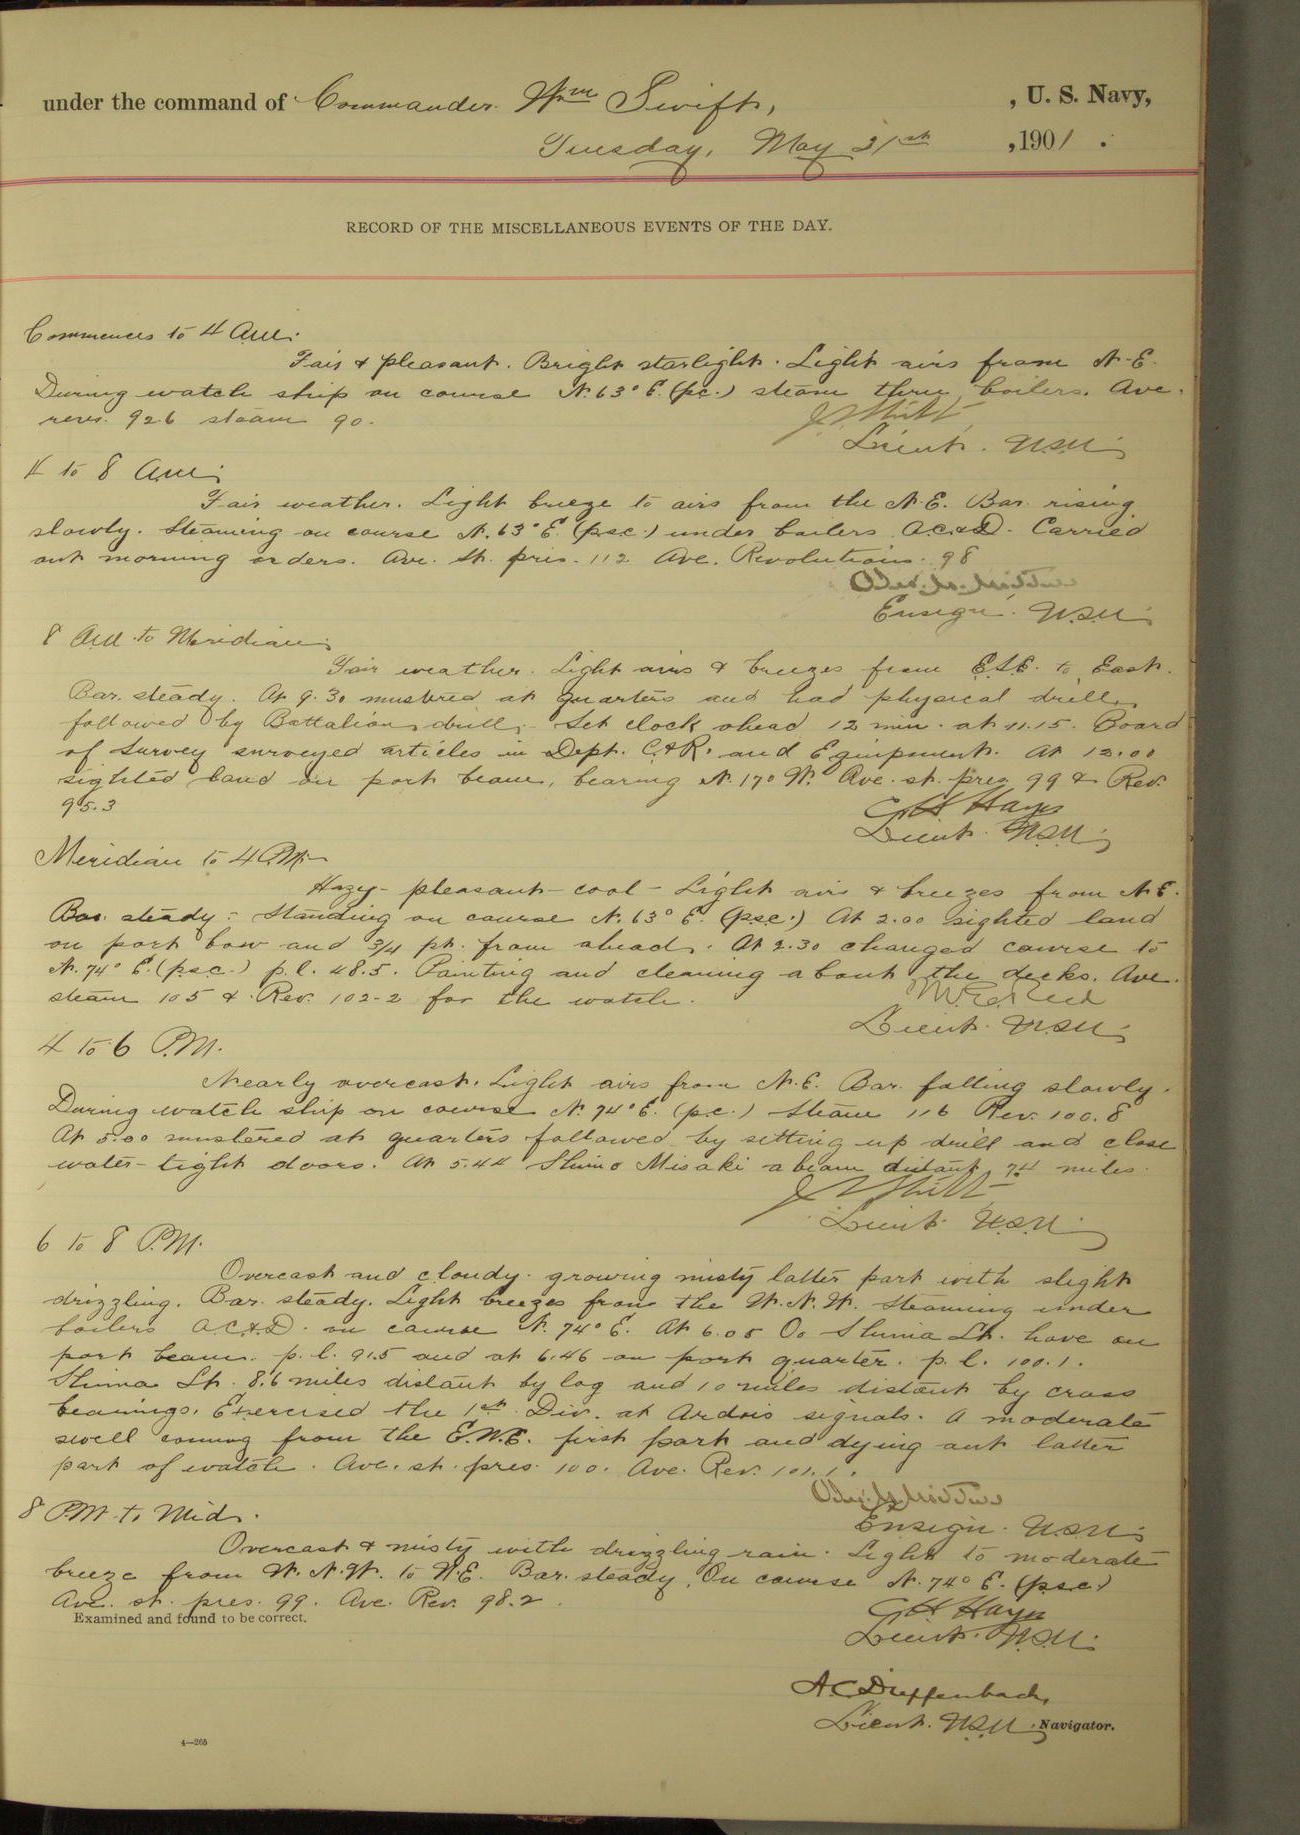 under the command of Commander Wm Swift, , U. S. Navy,
Tuesday, May 21st ,1901.
RECORD OF THE MISCELLANEOUS EVENTS OF THE DAY.
Commences to 4 A.M.
Fair & pleasant. Bright starlight. Light airs from N-E.
During watch ship on course N. 63° E. (p.c.) steam three boilers. Ave.
revs. 92.6 steam 90.
Lieut. U.S.N.
4 to 8 A.M.
Fair weather. Light breeze to airs from the N.E. Bar. rising
slowly. Steaming on course N. 63° E (p.s.c.) under boilers A.C.&D. Carried
out morning orders. Ave. St. pres. 112 Ave. Revolutions. 98
Ensign. U.S.N.
8 A.M. to Meridian.
Fair weather. Light airs & breezes from E.S.E. to East.
Bar. steady. At 9.30 mustered at quarters and had physical drill
followed by Battalion drill. Set clock ahead 12 min. at 11.15. Board
of Survey surveyed articles in Dept. C.&R. and Equipment. At 12.00
sighted land on port beam, bearing N. 17° W. Ave. st. pres 99 & Rev.
95.3
C H Hayes
Lieut. U.S.N.
Meridian to 4 P.M.
Hazy - pleasant - cool - Light airs & breezes from N E.
Bar. steady - Standing on course N. 63° E. (p.s.c.) At 2.00 sighted land
on port bow and 3/4 pt. from ahead. At 2.30 changed course to
N. 74° E. (p.s.c.) p.l. 48.5. Painting and cleaning about the decks. Ave.
steam 105 & Rev. 102-2 for the watch.
Lieut. U.S.N.
4 to 6 P.M.
Nearly overcast. Light airs from N.E. Bar. falling slowly.
During watch ship on course N. 74° E. (p.c.) Steam 116 Rev. 100.8
At 5.00 mustered at quarters followed by setting up drill and close
water-tight doors. At 5.44 Shino Misaki abeam distant 7 miles.
Lieut. U.S.N.
6 to 8 P.M.
Overcast and cloudy. growing misty latter part with slight
drizzling. Bar. steady. Light breezes from the W.N.W. Steaming under
boilers A.C.&D. on course N. 74° E. At 6.05 Oo Shima Lt. bore on
port beam. p.l. 91.5 and at 6.46 on port quarter. p.l. 100.1.
Shima Lt. 8.6 miles distant by log and 10 miles distant by cross
bearings. Exercised the 1st Div. at Ardois signals. A moderate
swell coming from the E.N.E. first part and dying out latter
part of watch. Ave. st. pres. 100. Ave. Rev. 101.1.
Ensign. U.S.N.
8 P.M. to Mid.
Overcast & misty with drizzling rain. Light to moderate
breeze from W.N.W. to N.E. Bar. steady. On course N. 74° E. (p.s.c.)
Ave. st. pres. 99. Ave. Rev. 98.2.
Examined and found to be correct.
C H Hayes
Lieut. U.S.N.
A.C. Dieffenbach,
Lieut. U.S.N., Navigator.
4—265